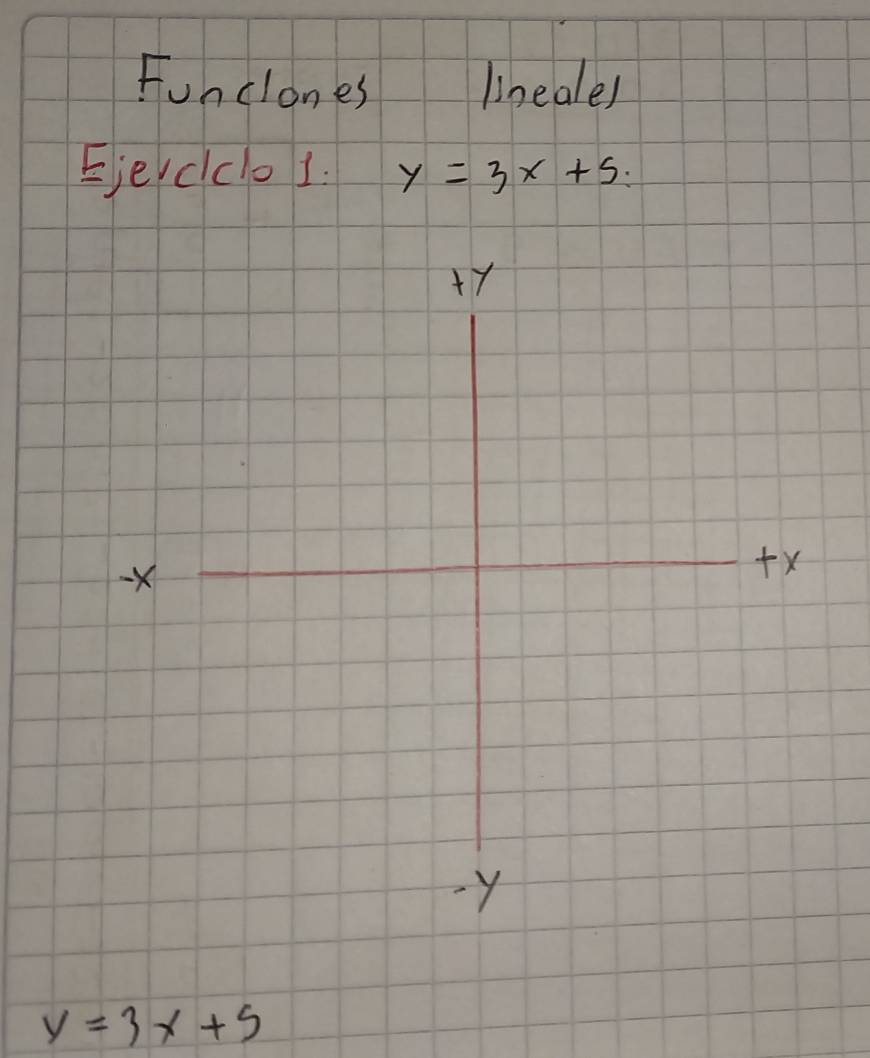 Funciones lineales
Ejercicio 1: y = 3x + 5.
+y
-x +x
-y
y = 3x + 5